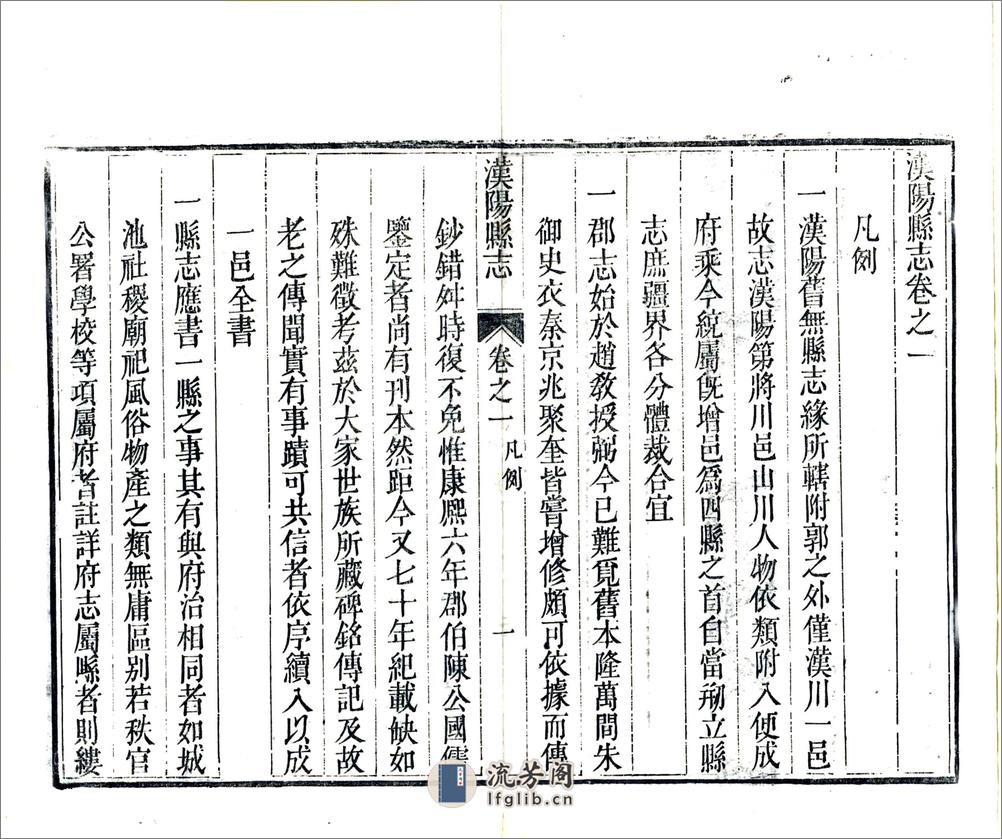 漢陽縣志卷之一
凡例
一漢陽舊無縣志緣所轄附郭之外僅漢川一邑
故志漢陽第將川邑山川人物依類附入便成
府乘今統屬旣增邑爲四縣之首自當剏立縣
志庶疆界各分體裁合宜
一郡志始於趙敎授弼今已難覓舊本隆萬間朱
御史衣秦京兆聚奎皆嘗增修頗可依據而傳
漢陽縣志
卷之一
凡例
一
鈔錯舛時復不免惟康熈六年郡伯陳公國儒
鑒定者尚有刊本然距今又七十年紀載缺如
殊難徵考茲於大家世族所藏碑銘傳記及故
老之傳聞實有事蹟可共信者依序續入以成
一邑全書
一縣志應書一縣之事其有與府治相同者如城
池社稷廟祀風俗物產之類無庸區别若秩官
公署學校等項屬府者註詳府志屬縣者則縷
流芳阁
lfglib.cn